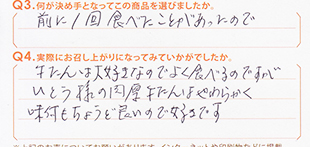 Q3.何が決め手となってこの商品を選びましたか。
前に1回食べたことがあったので
Q4.実際にお召し上がりになってみていかがでしたか。
牛たんは大好きなのでよく食べるのですが
いとう様の肉厚牛たんはやわらかく
味付もちょうど良いので好きです